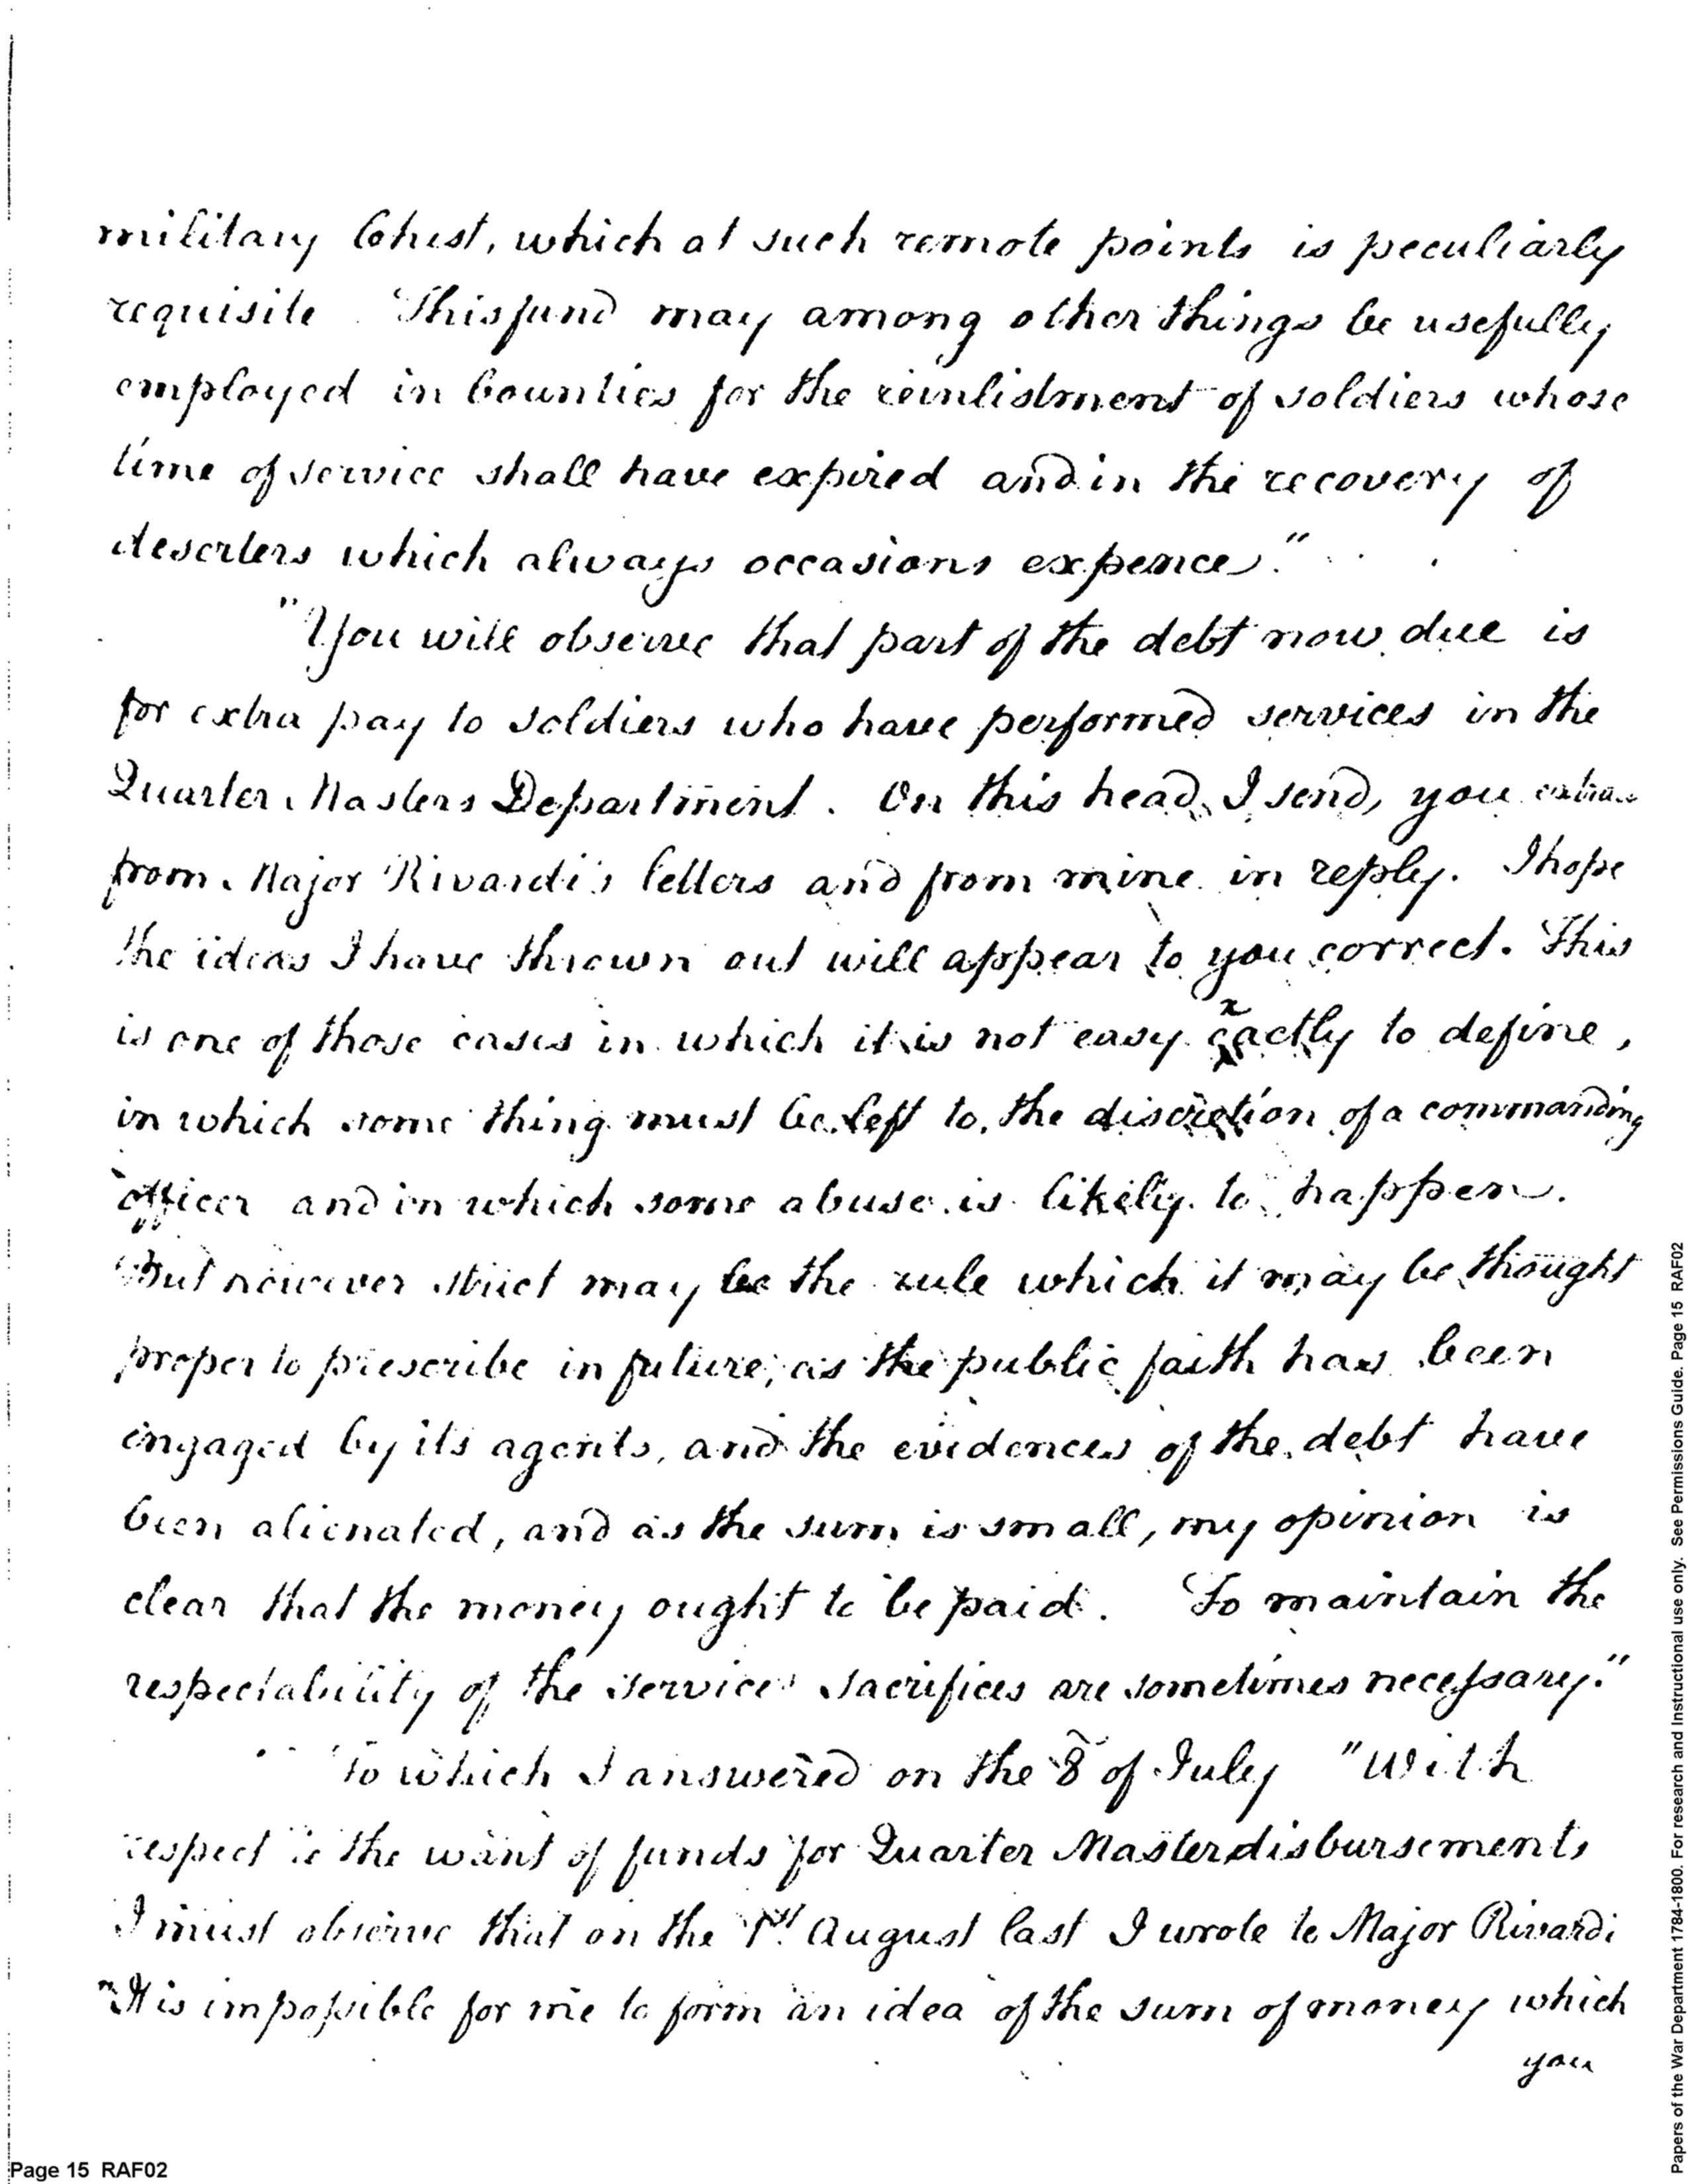 military Chest, which at such remote points is peculiarly
requisite. This fund may among other things be usefully
employed in bounties for the reinlistment of soldiers whose
time of service shall have expired and in the recovery of
deserters which always occasions expence."
"You will observe that part of the debt now due is
for extra pay to soldiers who have performed services in the
Quarter Masters Department. On this head, I send, you
from Major Rivardi's letters and from mine in reply. I hope
the ideas I have thrown out will appear to you correct. This
is one of those cases in which it is not easy exactly to define,
in which some thing must be left to the discretion of a commanding
officer and in which some abuse is likely to happen.
But however strict may be the rule which it may be thought
proper to prescribe in future, as the public faith has been
engaged by its agents, and the evidences of the debt have
been alienated, and as the sum is small, my opinion is
clear that the money ought to be paid. To maintain the
respectability of the service sacrifices are sometimes necessary."
To which I answered on the 8 of July "With
respect to the want of funds for Quarter Master disbursements
I must observe that on the 1st August last I wrote to Major Rivardi
"It is impossible for me to form an idea of the sum of money which
you
Page 15 RAF02
Papers of the War Department 1784-1800. For research and Instructional use only. See Permissions Guide. Page 15 RAF02